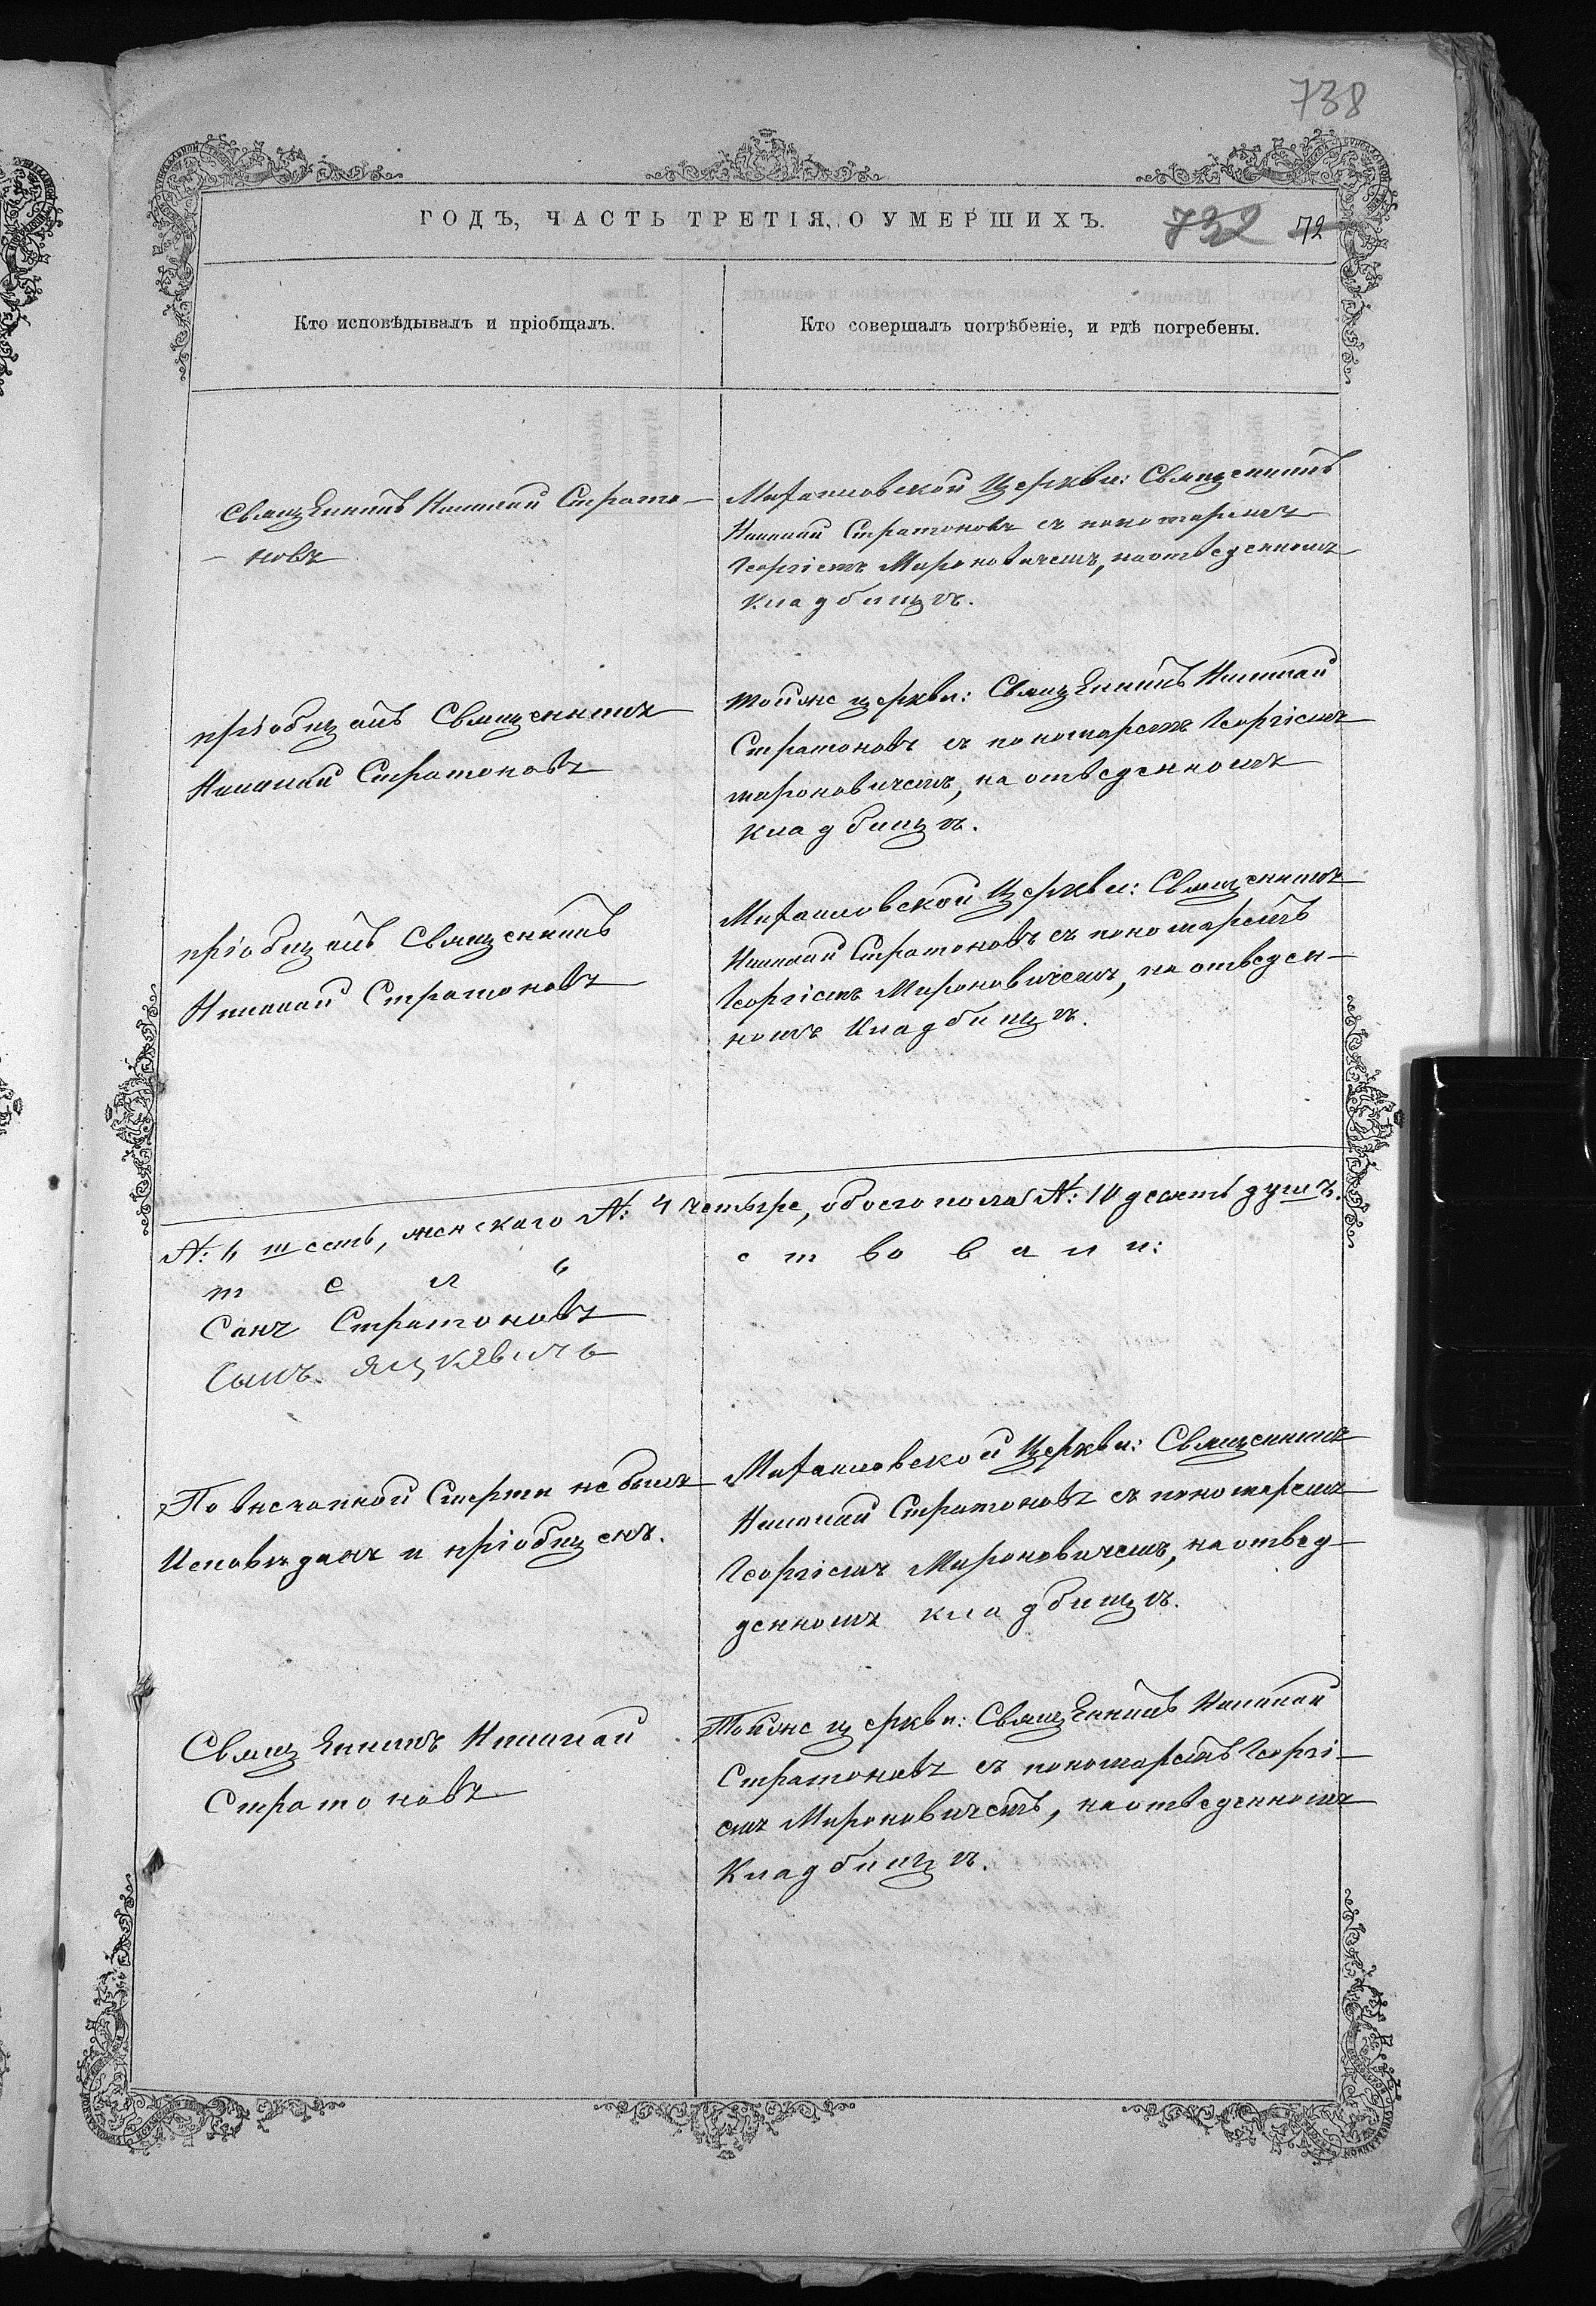 738
ГОДЪ, ЧАСТЬ ТРЕТІЯ, О УМЕРШИХЪ.
732 72
Кто исповѣдывалъ и пріобщалъ.
Кто совершалъ погрѣбеніе, и гдѣ погребены.
Священникъ Николай Страто-
-новъ
Михаиловской Церкви: Священникъ
Николай Стратоновъ съ пономаремъ
Георгіемъ Мироновичемъ, на отведенномъ
кладбищѣ.
пріобщалъ Священникъ
Николай Стратоновъ
тойже церкви: Священникъ Николай
Стратоновъ съ пономаремъ Георгіемъ
мироновичемъ, на отведенномъ
кладбищѣ.
пріобщалъ Священникъ
Николай Стратоновъ
Михаиловской Церкви: Священникъ
Николай Стратоновъ съ пономаремъ
Георгіемъ Мироновичемъ, на отведен-
номъ кладбищѣ.
№: 6 шесть, женскаго №: 4 четыре, обоего пола №: 10 десять душъ.
т е л ь
с т в о в а л и:
Стратоновъ
Яцкевичъ
По внезапной Смерти не былъ
Исповѣданъ и пріобщенъ.
Михаиловской Церкви: Священникъ
Николай Стратоновъ съ пономаремъ
Георгіемъ Мироновичемъ, на отвед-
денномъ кладбищѣ.
Священникъ Николай
Стратоновъ
Тойже церкви: Священникъ Николай
Стратоновъ съ пономаремъ Георгі-
емъ Мироновичемъ, на отведенномъ
Кладбищѣ.